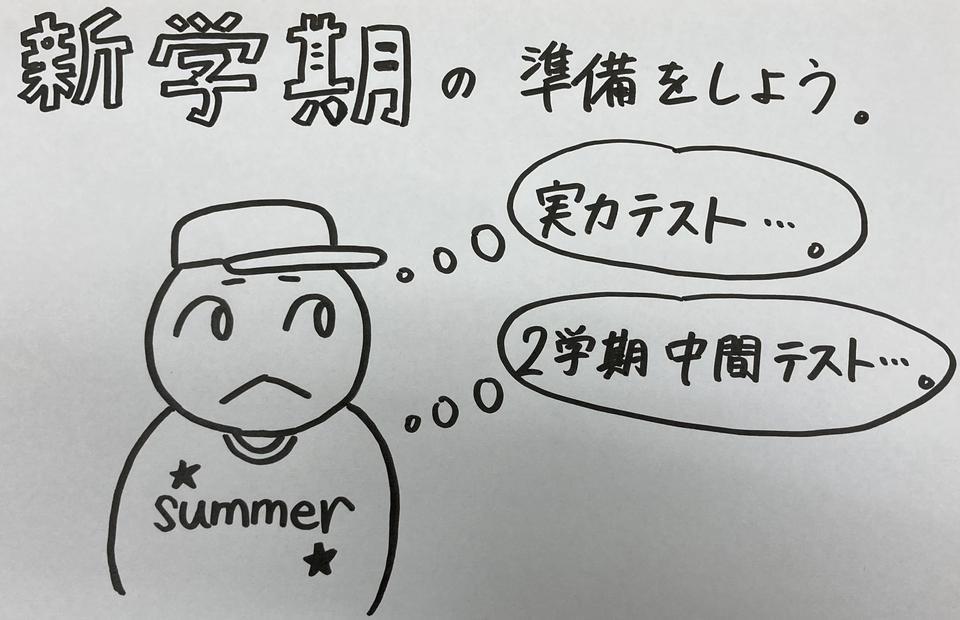 新学期の準備をしよう。
実力テスト…。
2学期中間テスト…。
summer